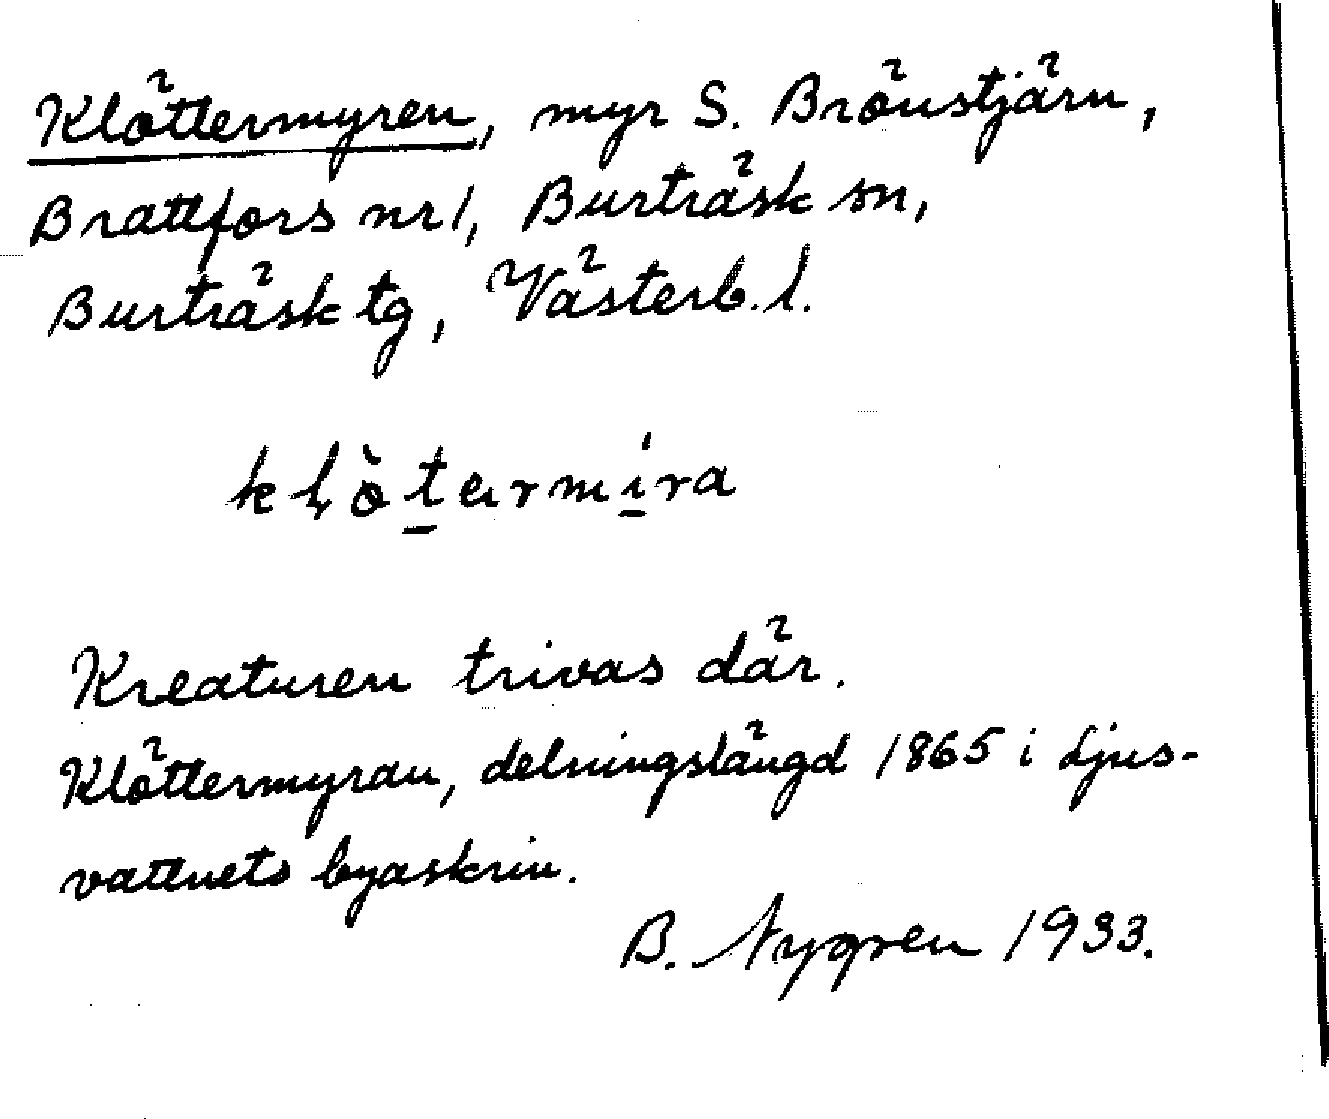 Klöttermyren, myr S. Brönstjärn,
Brattfors nr 1, Burträsk sn,
Burträsk tg, Västerb. l.
klò̱termí̱ra
Kreaturen trivas där.
Klöttermyran, delningslängd 1865 i Ljus-
vattnets byaskrin.
B. Nygren 1933.